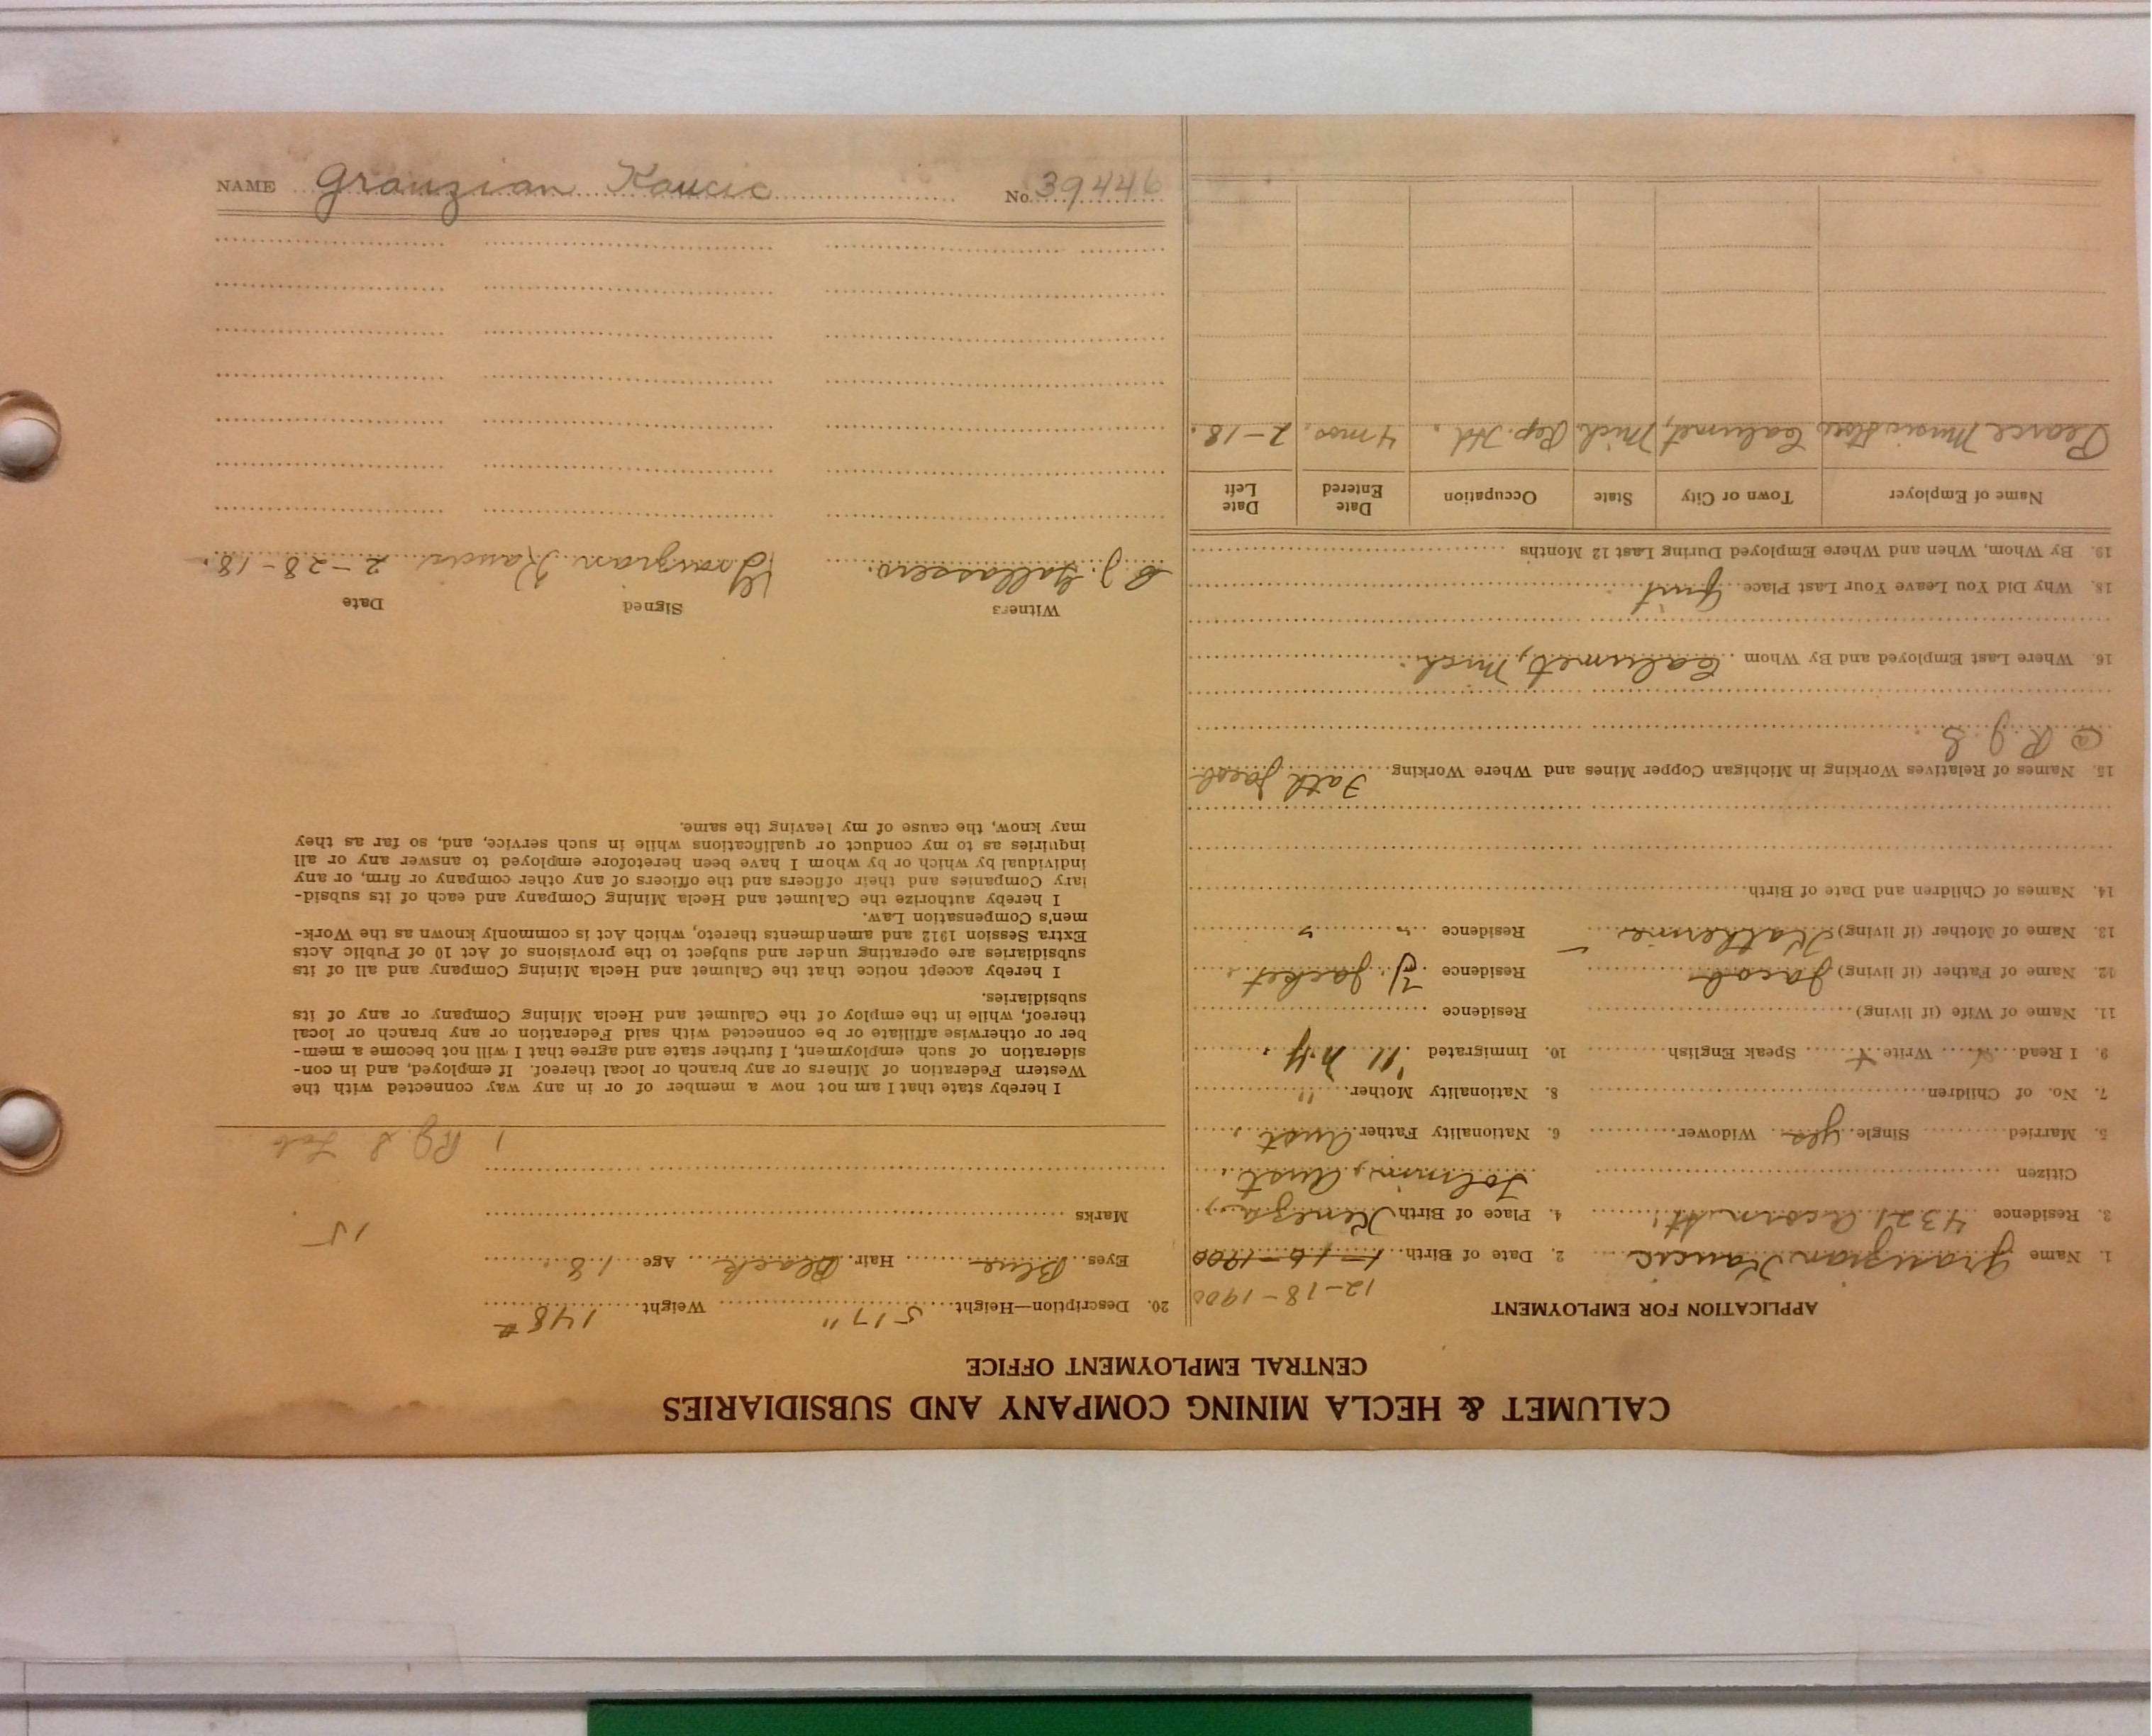 CALUMET & HECLA MINING COMPANY AND SUBSIDIARIES
CENTRAL EMPLOYMENT OFFICE
APPLICATION FOR EMPLOYMENT
12-18-1900
1. Name Grauzian Kaucic 2. Date of Birth 1-16-1900
3. Residence 4321 Acorn St. 4. Place of Birth
Citizen Tolmin, Aust.
5. Married Single yes Widower 6. Nationality Father Aust.
7. No. of Children 8. Nationality Mother "
9. I Read Write Speak English 10. Immigrated '11 N.Y.
11. Name of Wife (if living) Residence
12. Name of Father (if living) Jacob Residence Y. Jacket
13. Name of Mother (if living) Katherine Residence " "
14. Names of Children and Date of Birth
15. Names of Relatives Working in Michigan Copper Mines and Where Working Fath Jacob
@ R. J. S.
16. Where Last Employed and By Whom Calumet, Mich.
18. Why Did You Leave Your Last Place Quit
19. By Whom, When and Where Employed During Last 12 Months
Name of Employer Town or City State Occupation Date Entered Date Left
Pearce Music Store Calumet, Mich. Rep. 4 mos. 2-18.
20. Description—Height 5'7" Weight 148#
Eyes Blue Hair Black Age 18
Marks
15
1 RJ S
I hereby state that I am not now a member of or in any way connected with the
Western Federation of Miners or any branch or local thereof. If employed, and in con-
sideration of such employment, I further state and agree that I will not become a mem-
ber or otherwise affiliate or be connected with said Federation or any branch or local
thereof, while in the employ of the Calumet and Hecla Mining Company or any of its
subsidiaries.
I hereby accept notice that the Calumet and Hecla Mining Company and all of its
subsidiaries are operating under and subject to the provisions of Act 10 of Public Acts
Extra Session 1912 and amendments thereto, which Act is commonly known as the Work-
men's Compensation Law.
I hereby authorize the Calumet and Hecla Mining Company and each of its subsid-
iary Companies and their officers and the officers of any other company or firm, or any
individual by which or by whom I have been heretofore employed to answer any or all
inquiries as to my conduct or qualifications while in such service, and, so far as they
may know, the cause of my leaving the same.
Witness Signed Date
B. J. Gallassero. Grauzian Kaucic 2-28-18.
NAME Grauzian Kaucic No. 39446